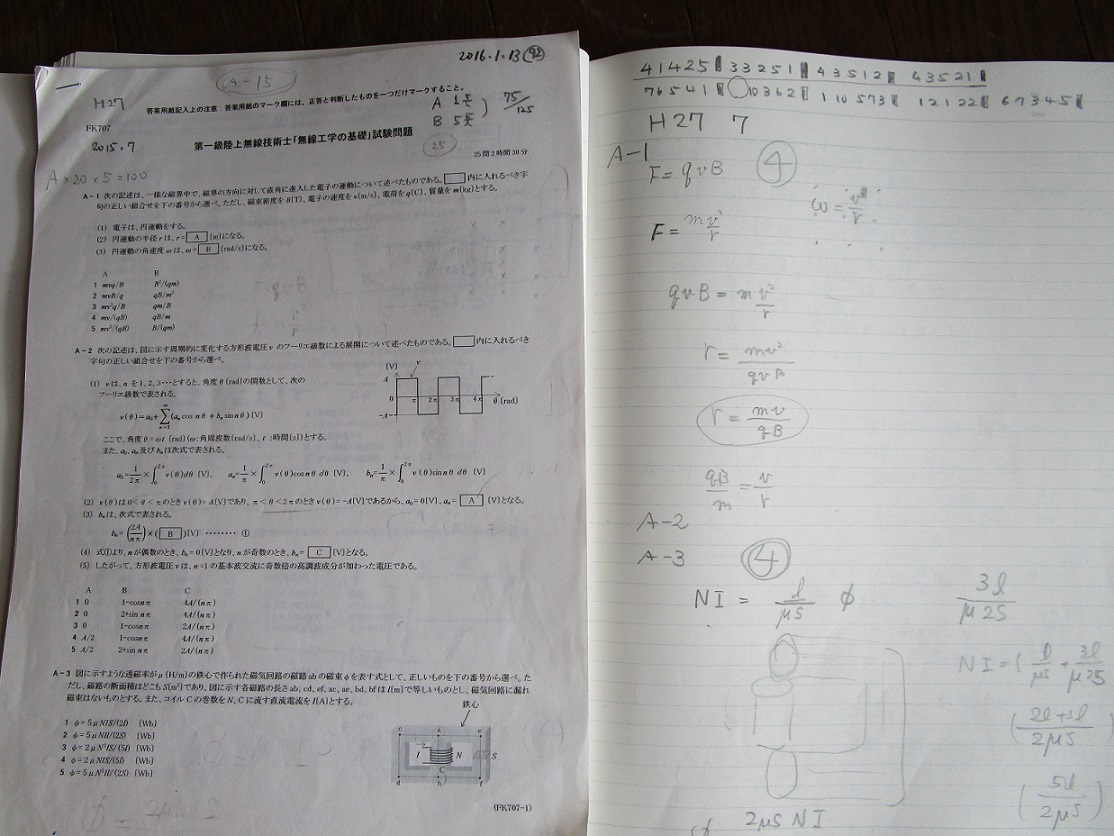 2016.1.13 (92)
A-15
H27 答案用紙記入上の注意 答案用紙のマーク欄には、正答と判断したものを一つだけマークすること。
A 1点
B 5点
75/125
FK707
2015.7
第一級陸上無線技術士「無線工学の基礎」試験問題
(25)
25問2時間30分
A×20×5=100
A-1 次の記述は、一様な磁界中で、磁界の方向に対して直角に進入した電子の運動について述べたものである。□内に入れるべき字
句の正しい組合せを下の番号から選べ。ただし、磁束密度をB[T]、電子の速度をv[m/s]、電荷をq[C]、質量をm[kg]とする。
(1) 電子は、円運動をする。
(2) 円運動の半径rは、r= A [m]になる。
(3) 円運動の角速度ωは、ω= B [rad/s]になる。
A B
1 mvq/B B²/(qm)
2 mvB/q qB/m²
3 mv²q/B qm/B
4 mv/(qB) qB/m
5 mv²/(qB) B/(qm)
A-2 次の記述は、図に示す周期的に変化する方形波電圧vのフーリエ級数による展開について述べたものである。□内に入れるべき
字句の正しい組合せを下の番号から選べ。
(1) vは、nを1, 2, 3…とすると、角度θ[rad]の関数として、次の
フーリエ級数で表される。
v(θ)=a₀+∑(aₙcos nθ+bₙsin nθ) [V]
n=1
ここで、角度θ=ωt [rad](ω:角周波数[rad/s]、t:時間[s])とする。
また、a₀, aₙ及びbₙは次式で表される。
a₀=1/2π×∫₀²π v(θ)dθ [V], aₙ=1/π×∫₀²π v(θ)cos nθ dθ [V], bₙ=1/π×∫₀²π v(θ)sin nθ dθ [V]
(V)
v
A
0
-A
π 2π 3π 4π θ[rad]
(2) v(θ)は0<θ<πのときv(θ)=A[V]であり、π<θ<2πのときv(θ)=-A[V]であるから、a₀=0[V]、aₙ= A [V]となる。
(3) bₙは、次式で表される。
bₙ=(2A/nπ)×( B )[V] ……… ①
(4) 式①より、nが偶数のとき、bₙ=0[V]となり、nが奇数のとき、bₙ= C [V]となる。
(5) したがって、方形波電圧vは、n=1の基本波交流に奇数倍の高調波成分が加わった電圧である。
A B C
1 0 1-cos nπ 4A/(nπ)
2 0 2+sin nπ 4A/(nπ)
3 0 1-cos nπ 2A/(nπ)
4 A/2 1-cos nπ 4A/(nπ)
5 A/2 2+sin nπ 2A/(nπ)
A-3 図に示すような透磁率がμ[H/m]の鉄心で作られた磁気回路の磁路abの磁束φを表す式として、正しいものを下の番号から選べ。た
だし、磁路の断面積はどこもS[m²]であり、図に示す各磁路の長さab, cd, ef, ac, ae, bd, bfはl[m]で等しいものとし、磁気回路に漏れ
磁束はないものとする。また、コイルCの巻数をN、Cに流す直流電流をI[A]とする。
1 φ=5μNIS/(2l) [Wb]
2 φ=5μNIl/(2S) [Wb]
3 φ=2μN²IS/(5l) [Wb]
4 φ=2μNIS/(5l) [Wb]
5 φ=5μN²Il/(2S) [Wb]
鉄心
c a e
I N S
C
d b f
(FK707-1)
41425 33251 43512 43521
76541 10362 110573 12122 67345
H27 7
A-1
F=qvB ④
ω=v²/r
F=mv²/r
qvB=mv²/r
r=mv²/qvB
r=mv/qB
qB/m=v/r
A-2
A-3 ④
NI=l/μS φ
3l/μ2S
NI=(l/μS+3l/μ2S
(2l+3l/2μS)
(5l/2μS)
2μS NI